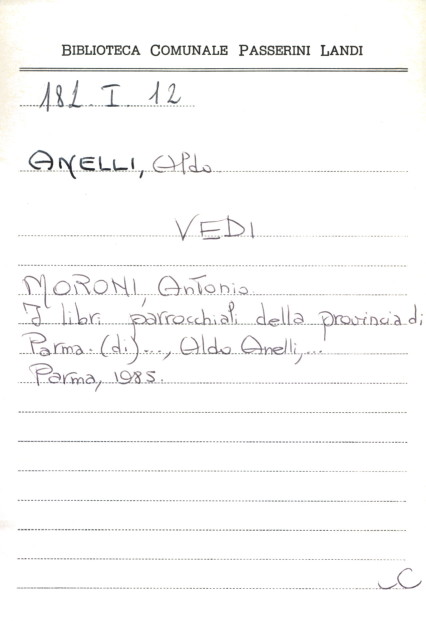 BIBLIOTECA COMUNALE PASSERINI LANDI
182 I 12
ANELLI, Aldo
VEDI
MORONI, Antonio
I libri parrocchiali della provincia di
Parma. (di) ..., Aldo Anelli, ...
Parma, 1985.